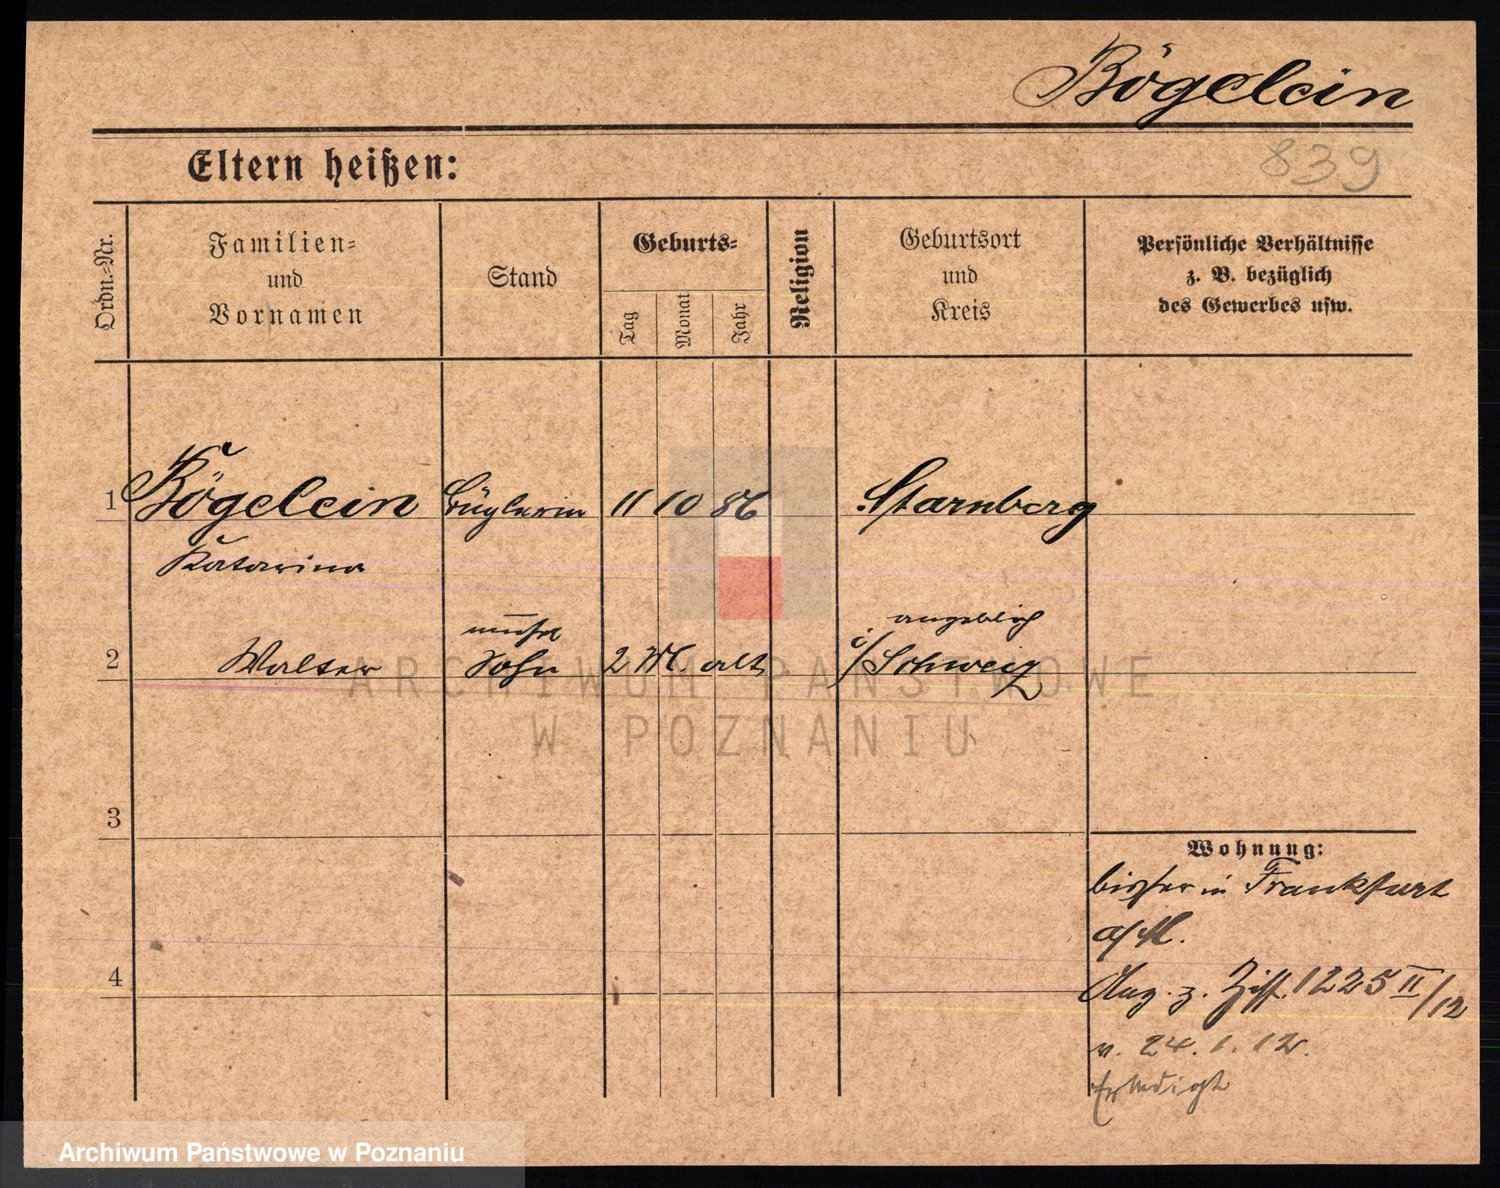 Bögelein
839
Eltern heißen:
Ordn.-Nr.
Familien-
und
Vornamen
Stand
Geburts-
Tag
Monat
Jahr
Religion
Geburtsort
und
Kreis
Persönliche Verhältnisse
z. B. bezüglich
des Gewerbes usw.
1 Bögelein Büglerin 11 10 86 Starnberg
Katarina
unehel angeblich
2 Walter Sohn 2 M. alt i/Schweiz
3
4
Wohnung:
bisher in Frankfurt
a/M.
Ang. z. Ziff. 1225 II/12
v. 24.1.12.
Erledigt
ARCHIWUM PAŃSTWOWE
W POZNANIU
Archiwum Państwowe w Poznaniu